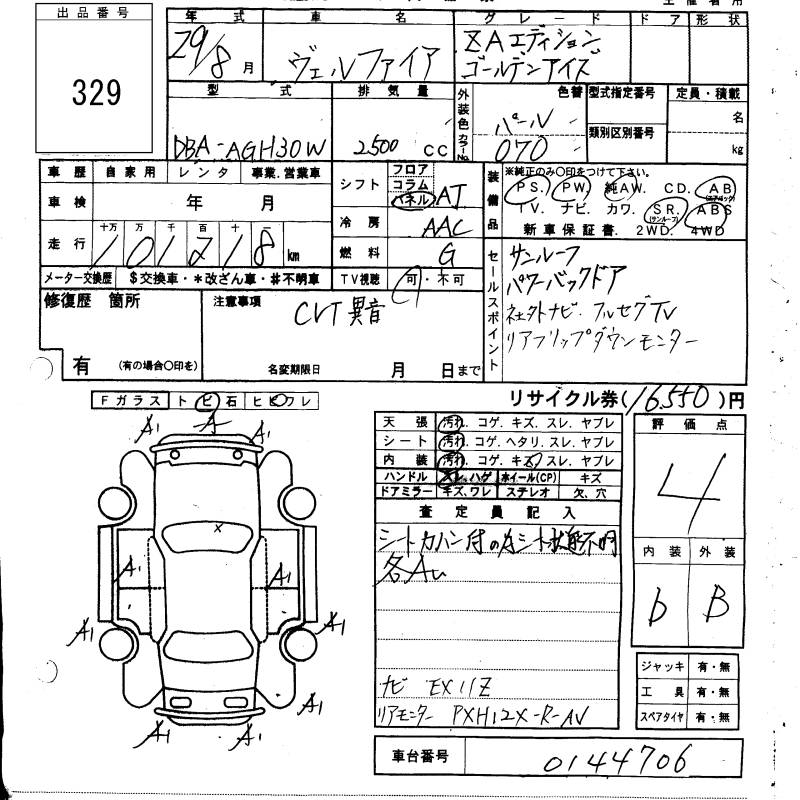 出品番号
329
年式 車名 グレード ドア 形状
29/8月 ヴェルファイア ZAエディション
ゴールデンアイズ
型式 排気量 外装色 色替 型式指定番号 定員・積載
DBA-AGH30W 2500 CC パール 名
カラーNo. 070 類別区別番号 kg
車歴 自家用 レンタ 事業.営業車
車検 年 月
走行 十万 万 千 百 十 一
101218 km
メーター交換歴 $交換車・*改ざん車・#不明車
シフト フロア
コラム
パネル AT
冷房 AAC
燃料 G
TV視聴 可・不可
装備品 ※純正のみ〇印をつけて下さい。
PS. PW. 純AW. CD. AB(エアバック)
TV. ナビ. カワ. SR.(サンルーフ) ABS
新車保証書. 2WD. 4WD
セールスポイント
サンルーフ
パワーバックドア
社外ナビ・フルセグTV
リアフリップダウンモニター
修復歴 箇所
有 (有の場合〇印を)
注意事項
CVT異音
名変期限日 月 日まで
リサイクル券(16,550)円
Fガラス トビ石 ヒビワレ
A
A1 A1
A1 A1
A1 A1
A1
A1 A1
天張 汚れ. コゲ. キズ. スレ. ヤブレ
シート 汚れ. コゲ. ヘタリ. スレ. ヤブレ
内装 汚れ. コゲ. キズ. スレ. ヤブレ
ハンドル スレ.ハゲ ホイール(CP) キズ
ドアミラー キズ.ワレ ステレオ 欠.穴
査定員記入
シートカバー付の為シート状態不明
各AU
ナビ EX11Z
リアモニター PXH12X-R-AV
評価点
4
内装 外装
b B
ジャッキ 有・無
工具 有・無
スペアタイヤ 有・無
車台番号 0144706